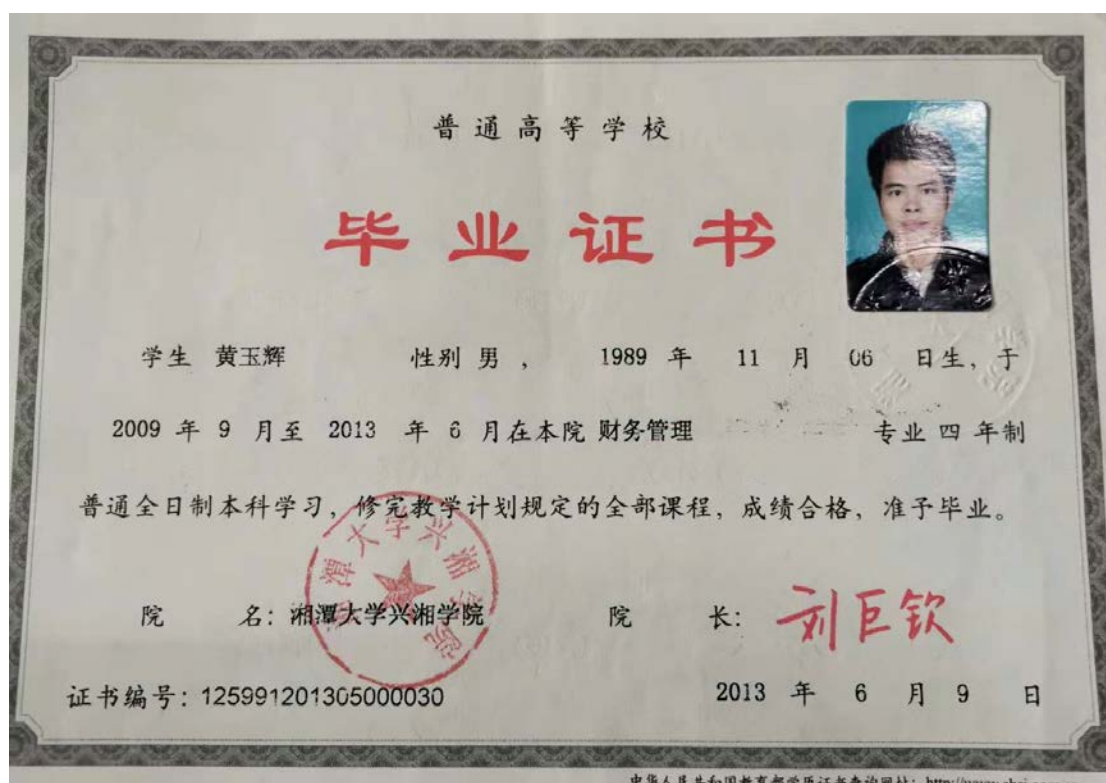 普通高等学校
毕业证书
学生 黄玉辉 性别 男 , 1989 年 11 月 06 日生, 于
2009 年 9 月至 2013 年 6 月在本院 财务管理 专业 四 年制
普通全日制本科学习, 修完教学计划规定的全部课程, 成绩合格, 准予毕业。
湘潭大学兴湘学院
院 名: 湘潭大学兴湘学院 院 长: 刘巨钦
证书编号: 125991201305000030 2013 年 6 月 9 日
中华人民共和国教育部学历证书查询网址: